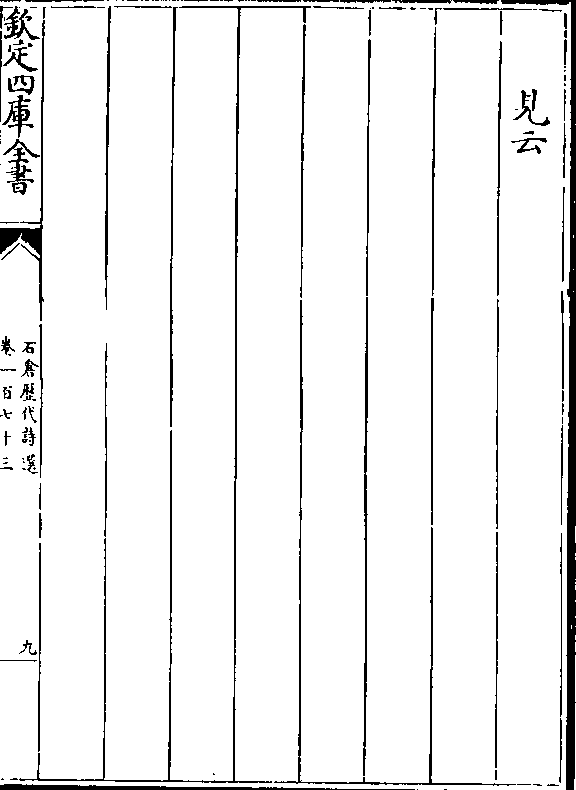 見云
欽定四庫全書
石倉歷代詩選
卷一百七十三
九